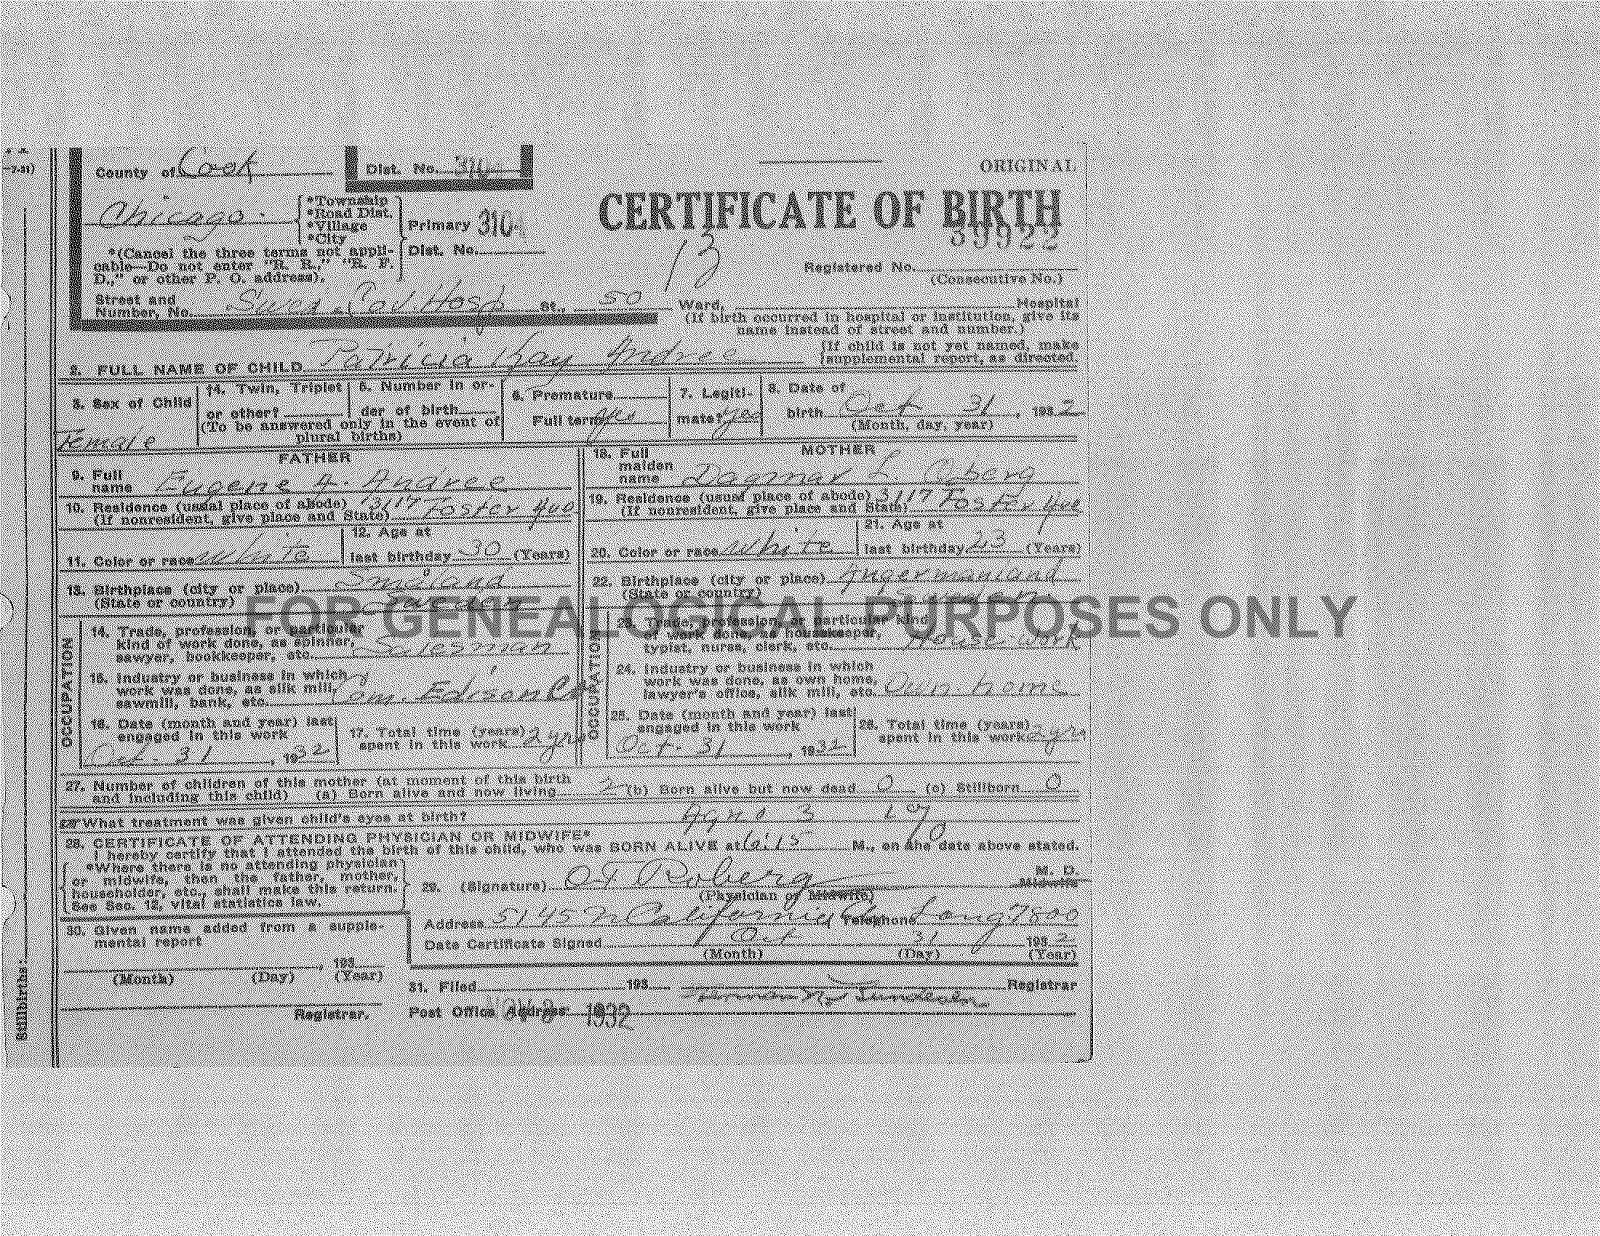 —7-31)
County of Cook
Dist. No. 3104
ORIGINAL
CERTIFICATE OF BIRTH
39922
Chicago
*Township
*Road Dist.
*Village
*City
Primary 3104
Dist. No.
*(Cancel the three terms not appli-
cable—Do not enter "R. R.," "R. F.
D.," or other P. O. address).
13
Registered No.
(Consecutive No.)
Street and
Number, No. Swed. Cov. Hosp St., 50 Ward, Hospital
(If birth occurred in hospital or institution, give its
name instead of street and number.)
2. FULL NAME OF CHILD Patricia Kay Andree
(If child is not yet named, make
supplemental report, as directed.
3. Sex of Child
Female
†4. Twin, Triplet
or other?
5. Number in or-
der of birth
(To be answered only in the event of
plural births)
6. Premature
Full term yes
7. Legiti-
mate? yes
8. Date of
birth Oct 31, 1932
(Month, day, year)
FATHER
9. Full
name Eugene A. Andree
10. Residence (usual place of abode) 3117 Foster Ave
(If nonresident, give place and State)
11. Color or race White
12. Age at
last birthday 30 (Years)
13. Birthplace (city or place) Småland
(State or country) Sweden
OCCUPATION
14. Trade, profession, or particular
kind of work done, as spinner,
sawyer, bookkeeper, etc. Salesman
15. Industry or business in which
work was done, as silk mill,
sawmill, bank, etc. Com. Edison Co
16. Date (month and year) last
engaged in this work
Oct. 31, 1932
17. Total time (years)
spent in this work 2 yrs
MOTHER
18. Full
maiden
name Dagmar L Oberg
19. Residence (usual place of abode) 3117 Foster Ave
(If nonresident, give place and State)
20. Color or race White
21. Age at
last birthday 23 (Years)
22. Birthplace (city or place) Angermanland
(State or country) Sweden
OCCUPATION
23. Trade, profession, or particular kind
of work done, as housekeeper,
typist, nurse, clerk, etc. House work
24. Industry or business in which
work was done, as own home,
lawyer's office, silk mill, etc. Own home
25. Date (month and year) last
engaged in this work
Oct. 31, 1932
26. Total time (years)
spent in this work 2 yrs
FOR GENEALOGICAL PURPOSES ONLY
27. Number of children of this mother (at moment of this birth
and including this child) (a) Born alive and now living 2 (b) Born alive but now dead 0 (c) Stillborn 0
What treatment was given child's eyes at birth? Agno 3 1%
28. CERTIFICATE OF ATTENDING PHYSICIAN OR MIDWIFE*
I hereby certify that I attended the birth of this child, who was BORN ALIVE at 6:15 M., on the date above stated.
*Where there is no attending physician
or midwife, then the father, mother,
householder, etc., shall make this return.
See Sec. 12, vital statistics law.
29. (Signature) OT Roberg M. D.
Midwife
(Physician or Midwife)
Address 5145 N California Telephone Long 7800
Date Certificate Signed Oct 31 1932
(Month) (Day) (Year)
30. Given name added from a supple-
mental report
, 193
(Month) (Day) (Year)
Registrar.
31. Filed 193 Herman N. Bundesen Registrar
Post Office Address
NOV 3 1932
Stillbirths: